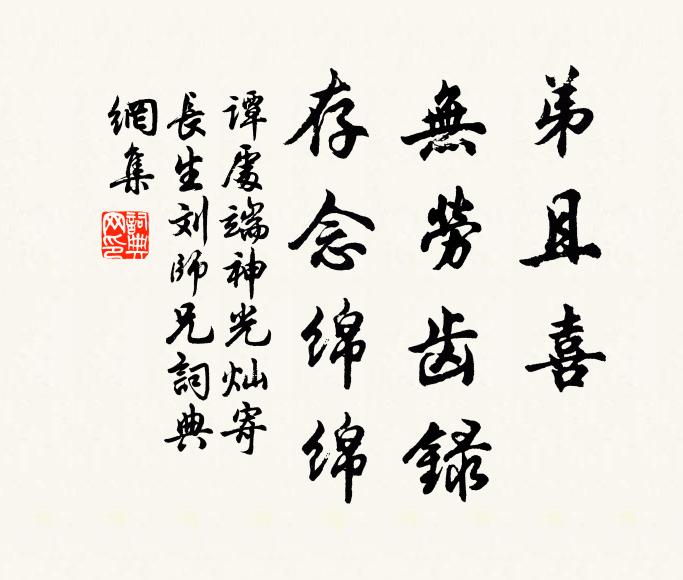 弟且喜
無勞齿録
存念绵绵
谭處端神光灿寄
長生刘師兄詞典
網集
詞典
网印